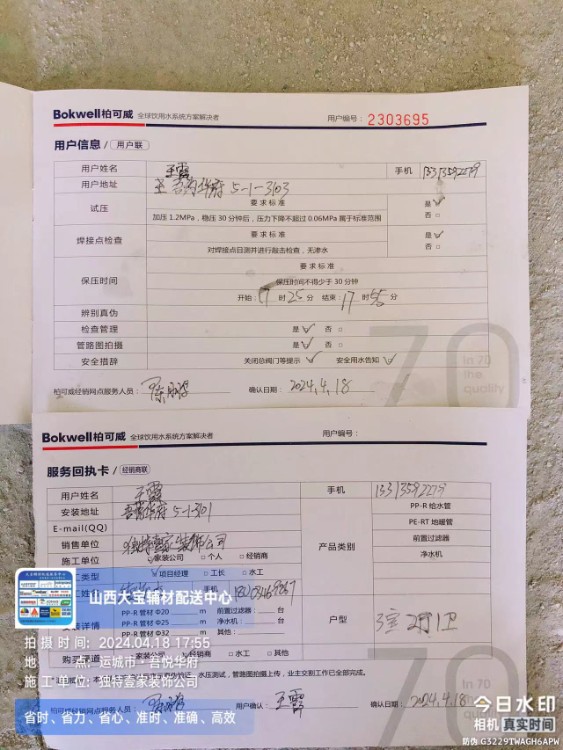 Bokwell柏可威 全球饮用水系统方案解决者 用户编号：2303695
用户信息 / 用户联
用户姓名 王霞 手机
用户地址 吾悦华府 5-1-3103
试压 要求标准 是√
加压 1.2MPa，稳压 30 分钟后，压力下降不超过 0.06MPa 属于标准范围 否□
焊接点检查 要求标准 是√
对焊接点目测并进行敲击检查，无渗水 否□
保压时间 要求标准
保压时间不得少于 30 分钟
开始：17 时 25 分 结束：17 时 55 分
辨别真伪
检查管理 是√ 否□
管路图拍摄 是√ 否□
安全措辞 关闭总阀门等提示√ 安全用水告知√
柏可威经销网点服务人员： 确认日期：2024.4.18
70
In 70
the
quality
Bokwell柏可威 全球饮用水系统方案解决者 用户编号：
服务回执卡 / 经销商联
用户姓名 王霞 手机
安装地址 吾悦华府 5-1-3101
E-mail(QQ)
销售单位 独特壹家装饰公司
施工单位 家装公司 □个人 □经销商
工类型 项目经理 □工长 □水工
产品类别
PP-R 给水管
PE-RT 地暖管
前置过滤器
净水机
手机
安装详情
PP-R 管材 Φ20 m 前置过滤器： 台
PP-R 管材 Φ25 m 净水机： 台
PP-R 管材 Φ32 m 其他：
户型 3室2厅1卫
购买渠道 家装公司 经销商 □水工 □其他
水压测试，管路图拍摄上传，业主交割工作已全部完成。
用户确认：王霞 确认日期：2024.4.18
70
In 70
quality
山西大宝辅材配送中心
拍摄时间：2024.04.18 17:55
地 点：运城市·吾悦华府
施工单位：独特壹家装饰公司
省时、省力、省心、准时、准确、高效
今日水印
相机 真实时间
防伪 G3229TWAGH6APW